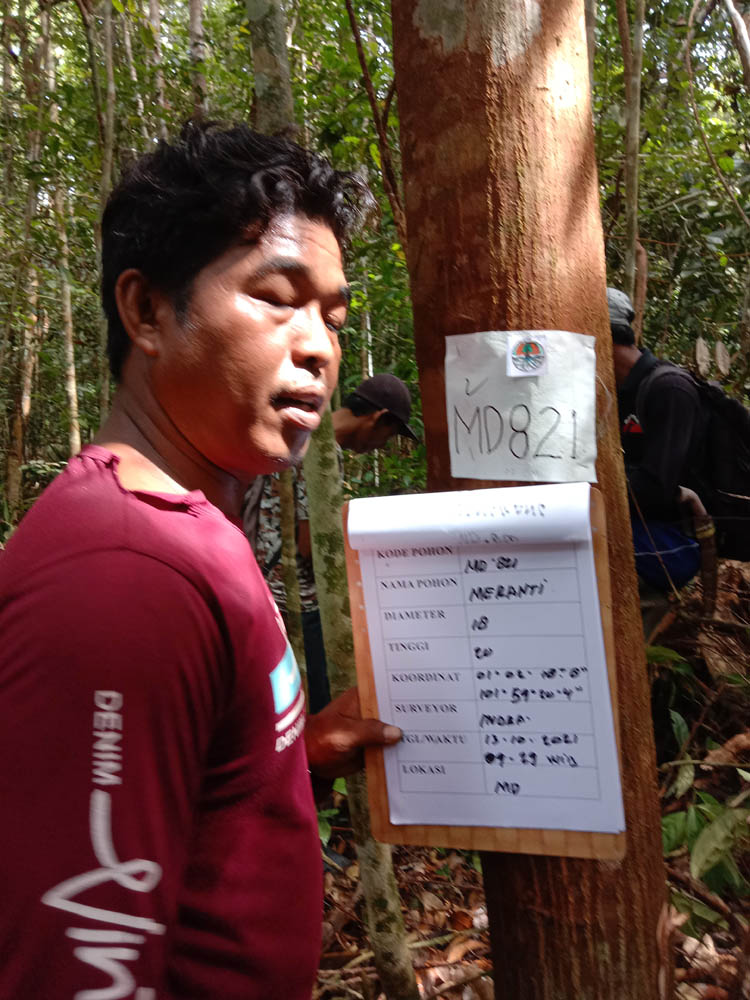 MD821
KODE POHON MD 821
NAMA POHON MERANTI
DIAMETER 18
TINGGI 20
KOORDINAT 01° 02' 18·8"
101° 59' 20·4"
SURVEYOR INDRA
TGL/WAKTU 13-10-2021
09-29 WIB
LOKASI MD
DENIM
DENIM